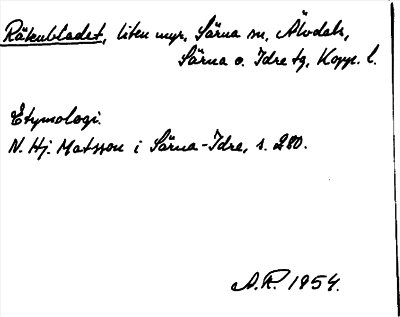 Råkubladet, liten myr, Särna sn, Älvdals,
Särna o. Idre tg, Kopp. l.
Etymologi.
N. Hj. Matsson i Särna-Idre, s. 280.
A.R. 1954.